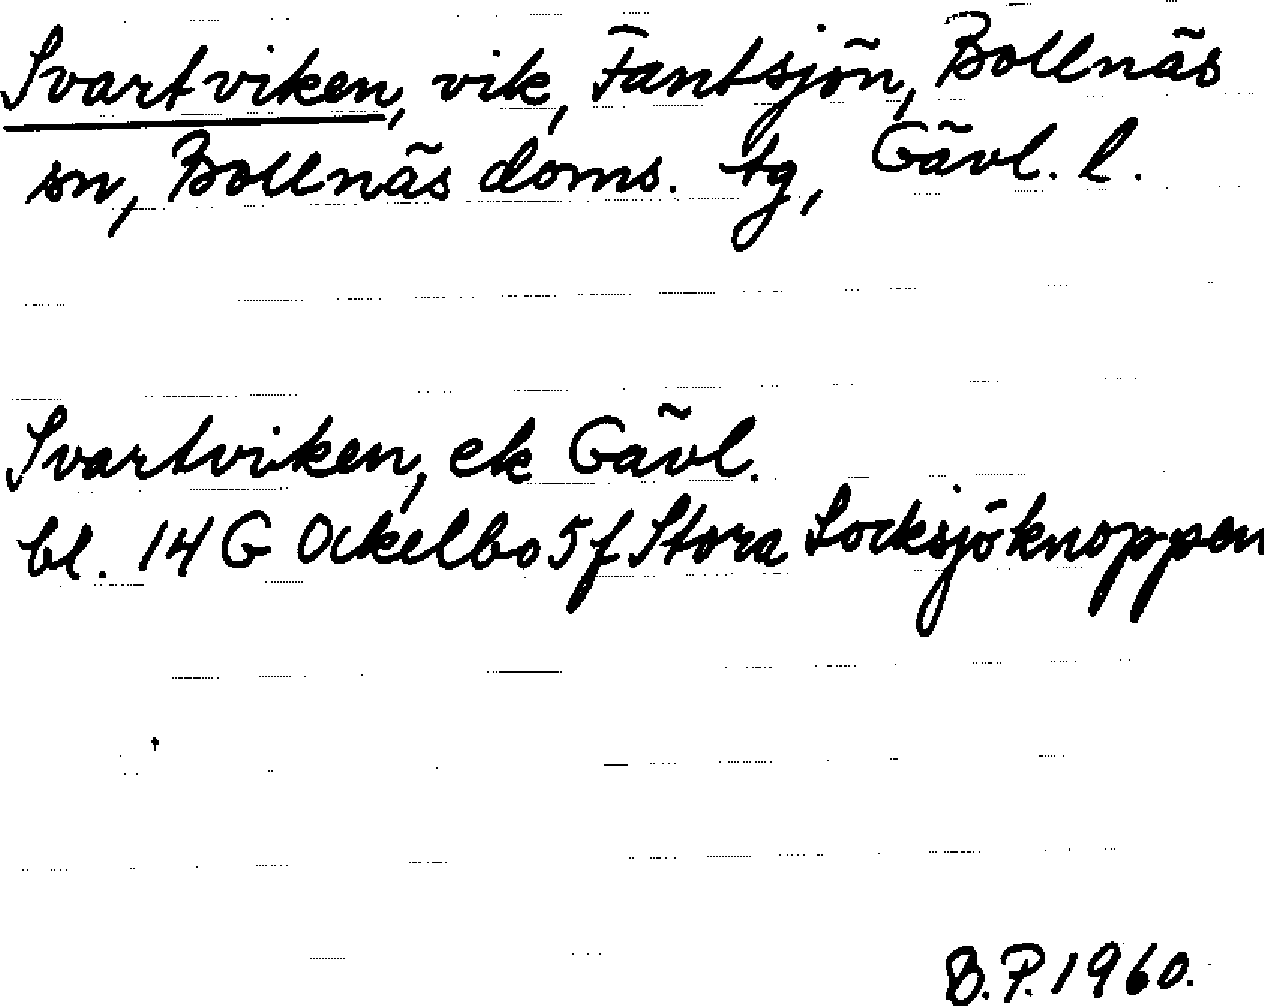 Svartviken, vik, Fantsjön, Bollnäs
sn, Bollnäs doms. tg, Gävl. l.
Svartviken, ek Gävl.
bl. 14 G Ockelbo 5 f Stora Locksjöknoppen
B.P. 1960.